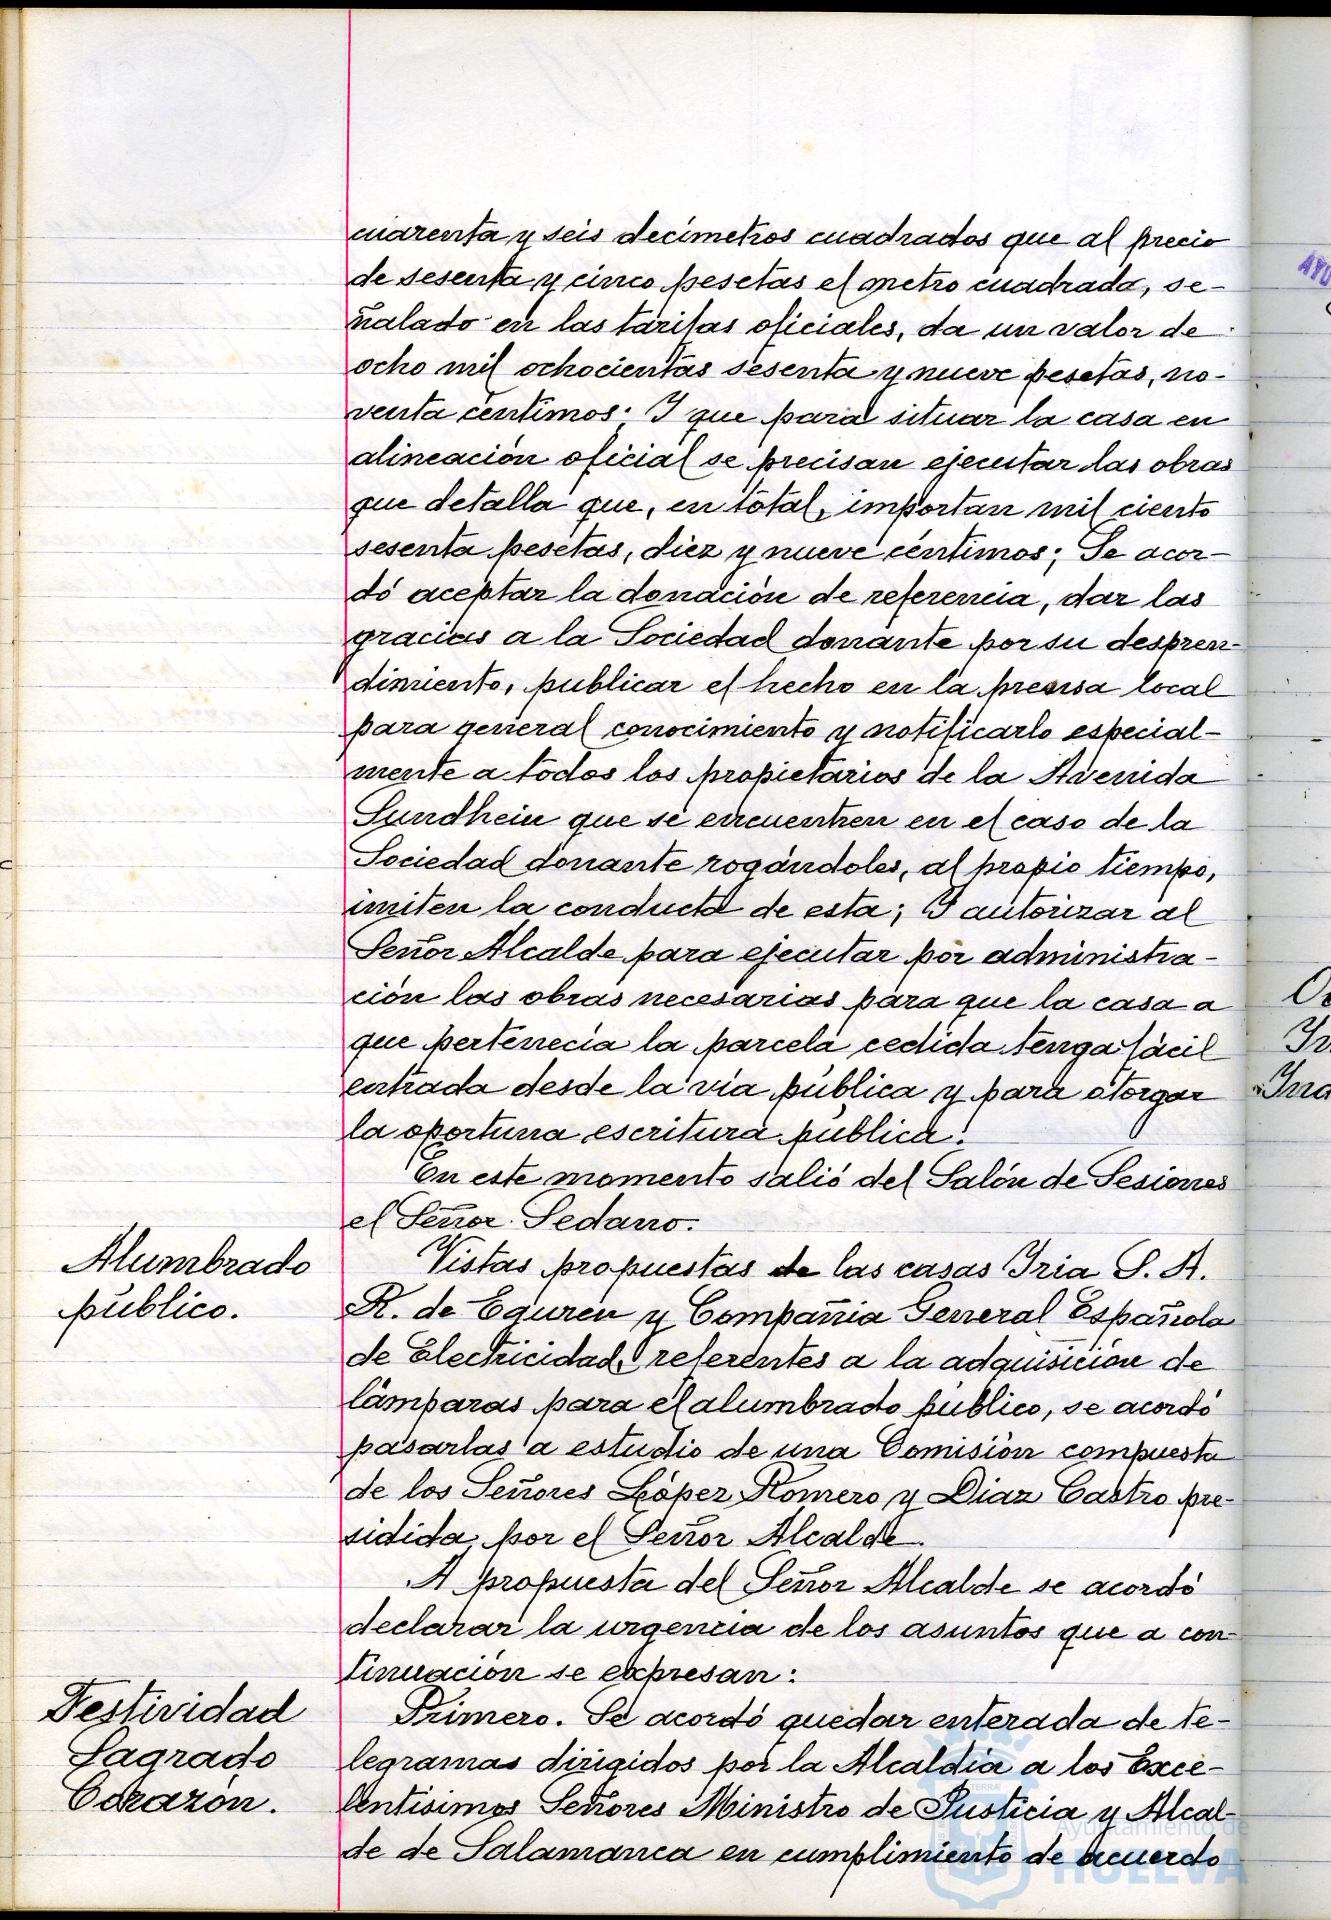 cuarenta y seis decímetros cuadrados que al precio
de sesenta y cinco pesetas el metro cuadrado, se-
ñalado en las tarifas oficiales, da un valor de
ocho mil ochocientas sesenta y nueve pesetas, no-
venta céntimos; Y que para situar la casa en
alineación oficial se precisan ejecutar las obras
que detalla que, en total, importan mil ciento
sesenta pesetas, diez y nueve céntimos; Se acor-
dó aceptar la donación de referencia, dar las
gracias a la Sociedad donante por su despren-
dimiento, publicar el hecho en la prensa local
para general conocimiento y notificarlo especial-
mente a todos los propietarios de la Avenida
Sundhein que se encuentren en el caso de la
Sociedad donante rogándoles, al propio tiempo,
imiten la conducta de esta; Y autorizar al
Señor Alcalde para ejecutar por administra-
ción las obras necesarias para que la casa a
que pertenecía la parcela cedida tenga fácil
entrada desde la vía pública y para otorgar
la oportuna escritura pública.
En este momento salió del Salón de Sesiones
el Señor Sedano.
Alumbrado
público.
Vistas propuestas de las casas Iria S. A.
R. de Eguren y Compañia General Española
de Electricidad, referentes a la adquisición de
lámparas para el alumbrado público, se acordó
pasarlas a estudio de una Comisión compuesta
de los Señores López Romero y Diaz Castro pre-
sidida por el Señor Alcalde.
A propuesta del Señor Alcalde se acordó
declarar la urgencia de los asuntos que a con-
tinuación se expresan:
Festividad
Sagrado
Corazón.
Primero. Se acordó quedar enterada de te-
legramas dirigidos por la Alcaldía a los Exce-
lentísimos Señores Ministro de Justicia y Alcal-
de de Salamanca en cumplimiento de acuerdo
Ayuntamiento de
HUELVA